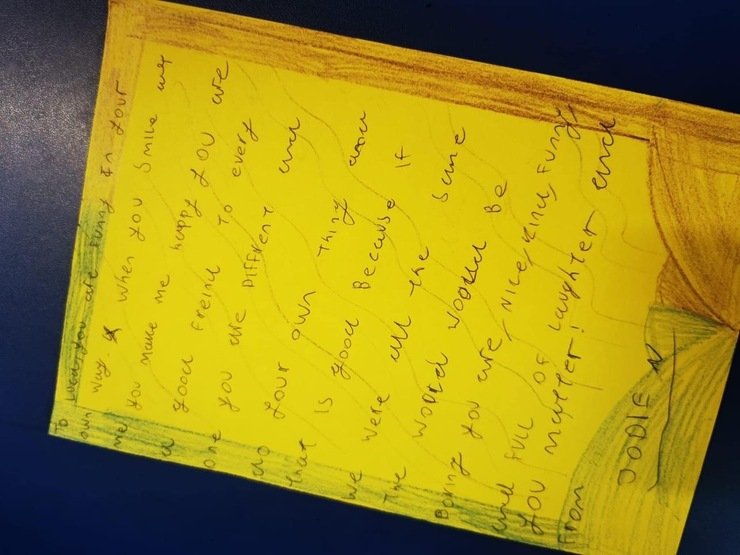 To you are Funny In Your
own way. When you smile at
me you make me happy you are
a good Freind To every
one you are DIFFrent and
do your own Thing and
That is good Because IF
we were all the same
The world woould Be
Boring you are, nice, kind, Funny
and FULL OF Laughter and
YOU matter!
From
JODIE N